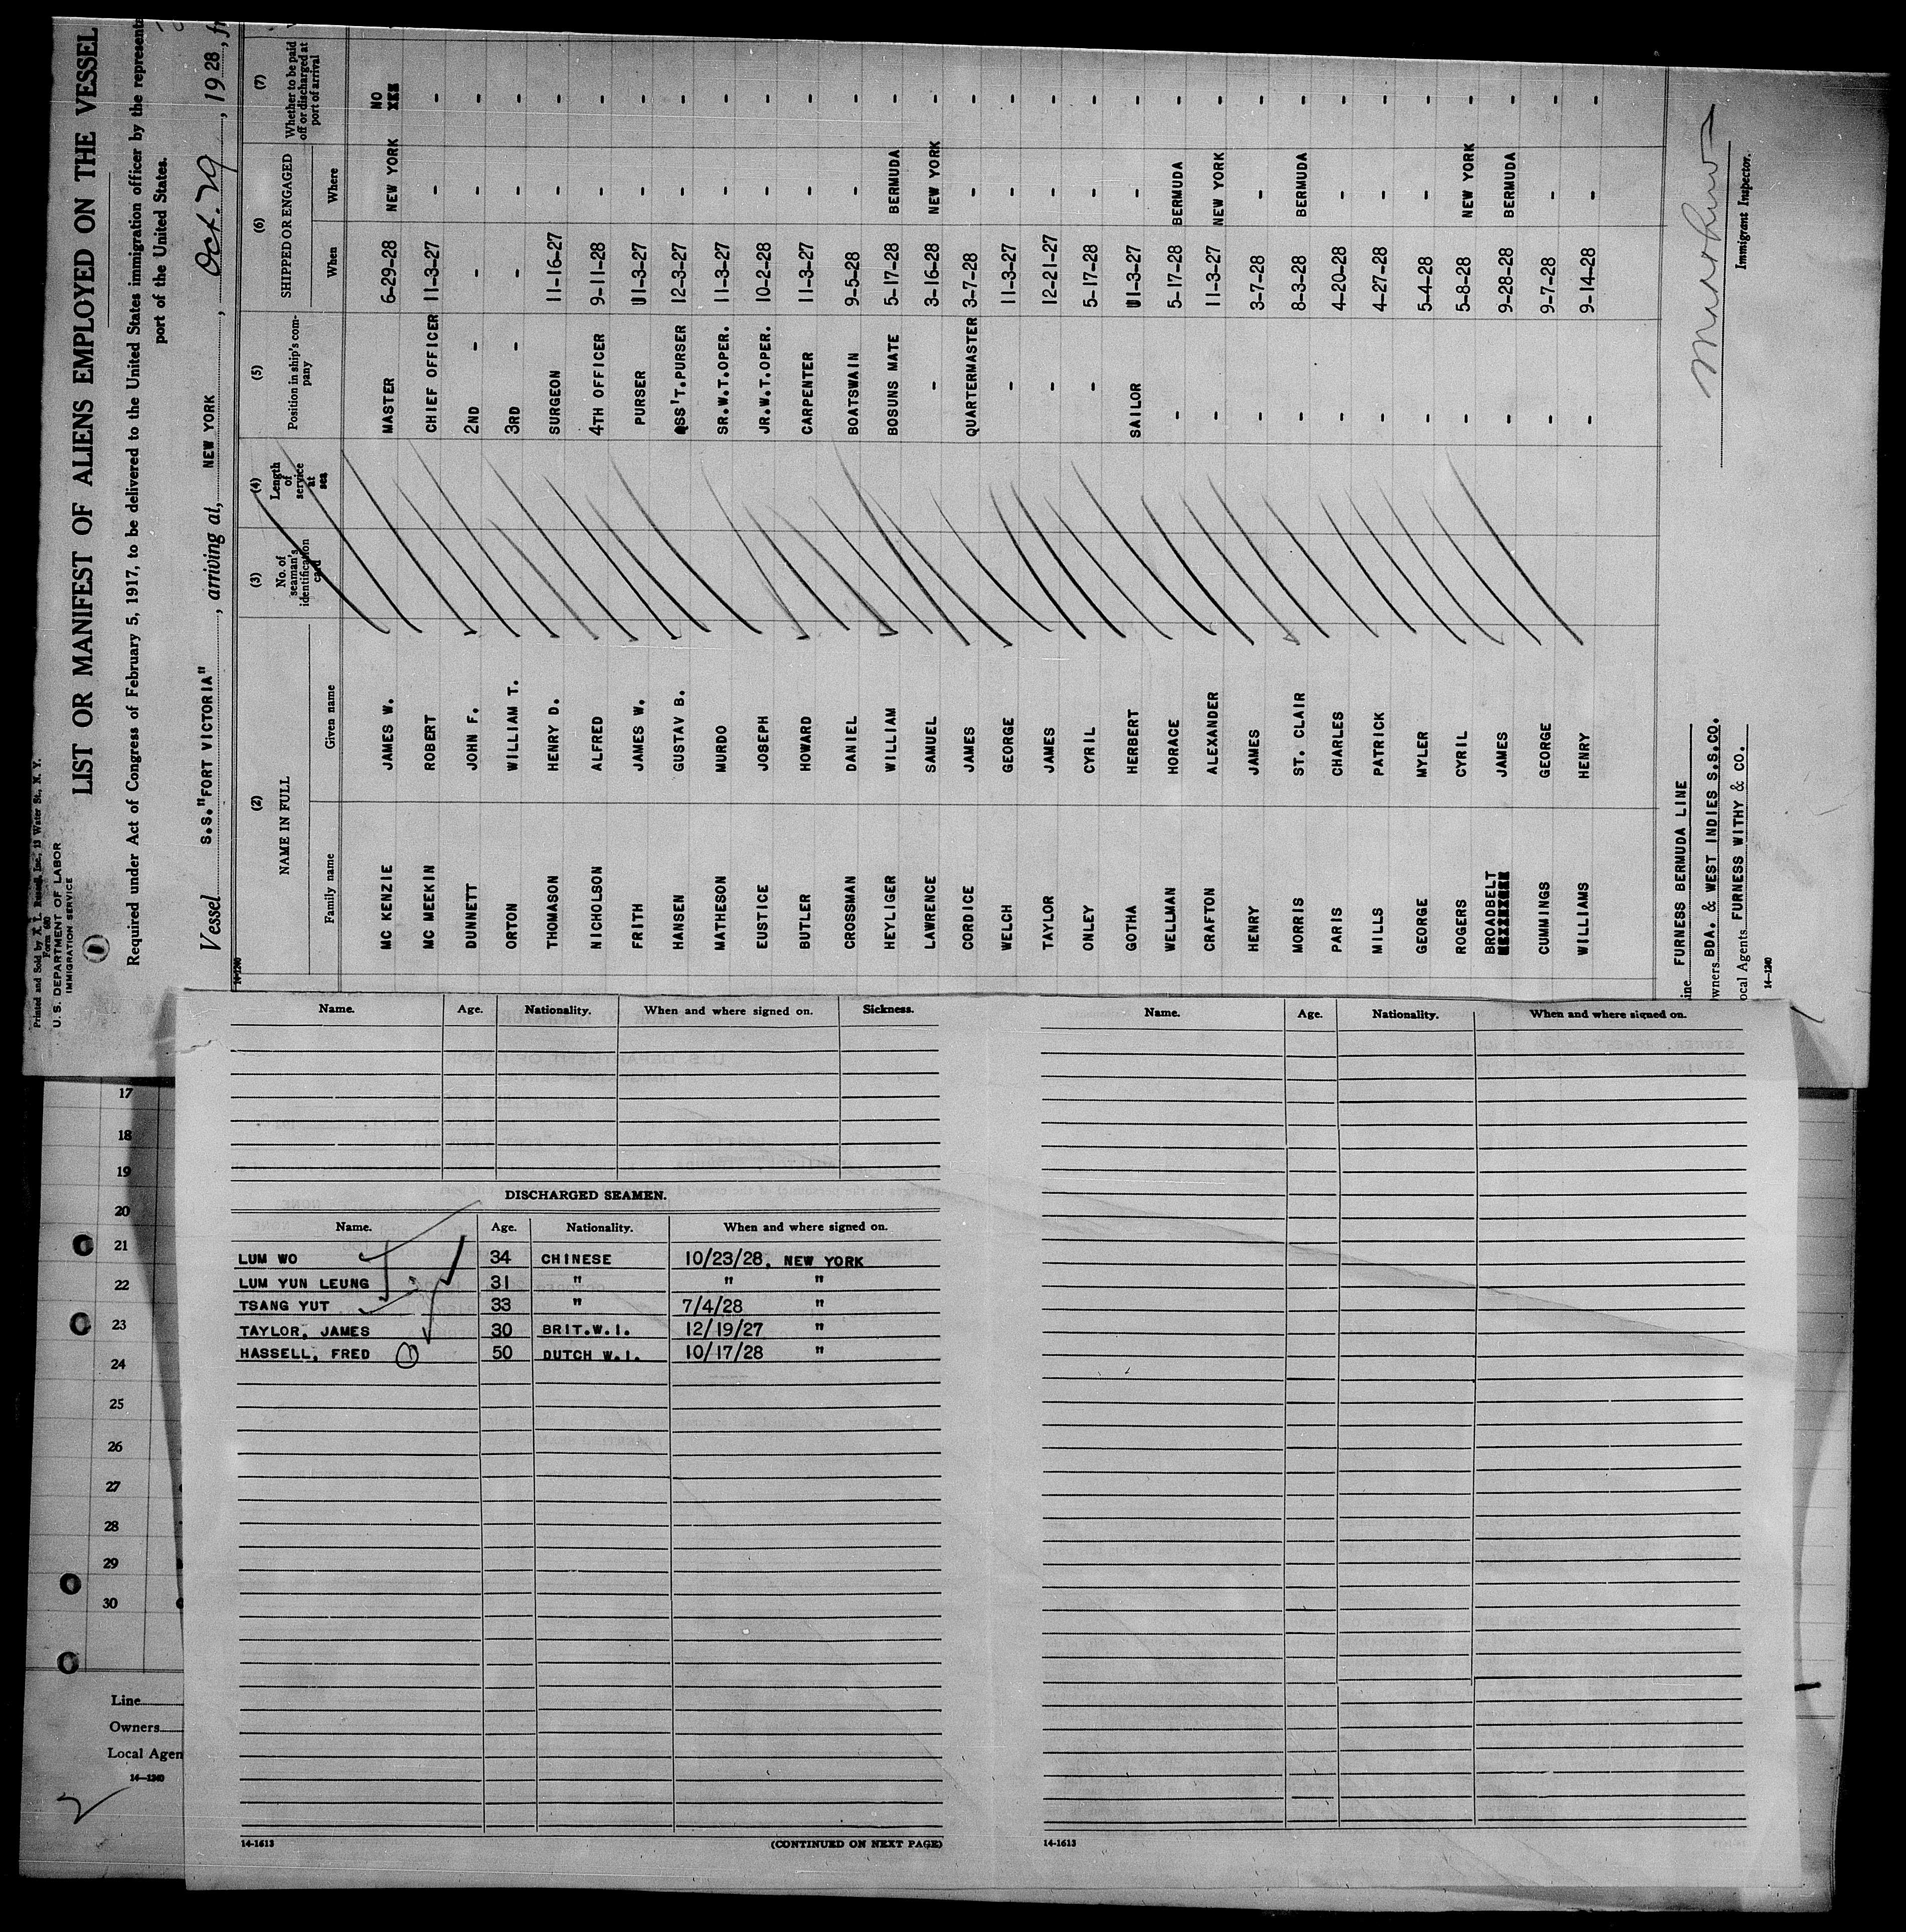 Printed and Sold by A. L. Russell, Inc., 13 Water St., N. Y.
Form 680
U. S. DEPARTMENT OF LABOR
IMMIGRATION SERVICE
1
LIST OR MANIFEST OF ALIENS EMPLOYED ON THE VESSEL
Required under Act of Congress of February 5, 1917, to be delivered to the United States immigration officer by the
port of the United States.
Vessel S.S."FORT VICTORIA", arriving at, NEW YORK, Oct. 29, 1928,
14-1240
(2) (3) (4) (5) (6) (7)
NAME IN FULL No. of seaman's identification card Length of service at sea Position in ship's company SHIPPED OR ENGAGED Whether to be paid off or discharged at port of arrival
Family name Given name When Where
MC KENZIE JAMES W. MASTER 6-29-28 NEW YORK NO
MC MEEKIN ROBERT CHIEF OFFICER 11-3-27 - -
DUNNETT JOHN F. 2ND - - - -
ORTON WILLIAM T. 3RD - - - -
THOMASON HENRY D. SURGEON 11-16-27 - -
NICHOLSON ALFRED 4TH OFFICER 9-11-28 - -
FRITH JAMES W. PURSER 11-3-27 - -
HANSEN GUSTAV B. ASS'T.PURSER 12-3-27 - -
MATHESON MURDO SR.W.T.OPER. 11-3-27 - -
EUSTICE JOSEPH JR.W.T.OPER. 10-2-28 - -
BUTLER HOWARD CARPENTER 11-3-27 - -
CROSSMAN DANIEL BOATSWAIN 9-5-28 - -
HEYLIGER WILLIAM BOSUNS MATE 5-17-28 BERMUDA -
LAWRENCE SAMUEL - 3-16-28 NEW YORK -
CORDICE JAMES QUARTERMASTER 3-7-28 - -
WELCH GEORGE - 11-3-27 - -
TAYLOR JAMES - 12-21-27 - -
ONLEY CYRIL - 5-17-28 - -
GOTHA HERBERT SAILOR 11-3-27 - -
WELLMAN HORACE - 5-17-28 BERMUDA -
CRAFTON ALEXANDER - 11-3-27 NEW YORK -
HENRY JAMES - 3-7-28 - -
MORRIS ST. CLAIR - 8-3-28 BERMUDA -
PARIS CHARLES - 4-20-28 - -
MILLS PATRICK - 4-27-28 - -
GEORGE MYLER - 5-4-28 - -
ROGERS CYRIL - 5-8-28 NEW YORK -
BROADBELT JAMES - 9-28-28 BERMUDA -
CUMMINGS GEORGE - 9-7-28 - -
WILLIAMS HENRY - 9-14-28 - -
ine FURNESS BERMUDA LINE
wners BDA. & WEST INDIES S.S.CO.
ocal Agents FURNESS WITHY & CO.
Immigrant Inspector.
14-1240
Name. Age. Nationality. When and where signed on. Sickness.
DISCHARGED SEAMEN.
Name. Age. Nationality. When and where signed on.
LUM WO 34 CHINESE 10/23/28, NEW YORK
LUM YUN LEUNG 31 " " "
TSANG YUT 33 " 7/4/28 "
TAYLOR, JAMES 30 BRIT.W.I. 12/19/27 "
HASSELL, FRED 50 DUTCH W.I. 10/17/28 "
14-1613 (CONTINUED ON NEXT PAGE)
Name. Age. Nationality. When and where signed on.
14-1613
17
18
19
20
21
22
23
24
25
26
27
28
29
30
Line
Owners
Local Agen
14-1240